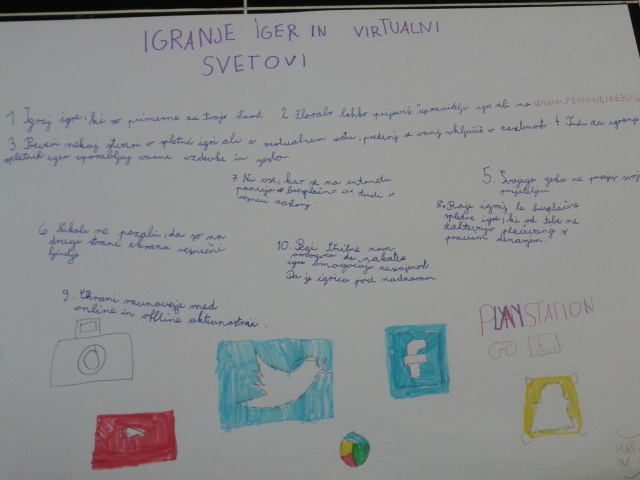 IGRANJE IGER IN VIRTUALNI
SVETOVI
1. Igraj igre, ki so primerne za tvojo starost. 2. Zlorabo lahko prijaviš upravitelju igre ali na WWW.
3. Preveri nekaj stvari o spletni igri ali o virtualnem svetu, preden se vanj vključiš o zasebnosti. 4. Tudi za igranje
spletnih iger uporabljaj varne vzdevke in geslo.
5. Svojega gesla ne zaupaj svojim
prijateljem.
6. Nikoli ne pozabi, da so na
drugi strani ekrana resnični
ljudje.
7. Ni vse, kar se na internetu
ponuja brezplačno in tudi v
resnici zastonj.
8. Raje igraj le brezplačne
spletne igre, ki od tebe ne
zahtevajo plačevanja s
pravim denarjem.
9. Ohrani ravnovesje med
online in offline aktivnostmi.
10.
igre omogočajo zasvojenost.
Da je igrica pod nadzorom.
PLAYSTATION
f